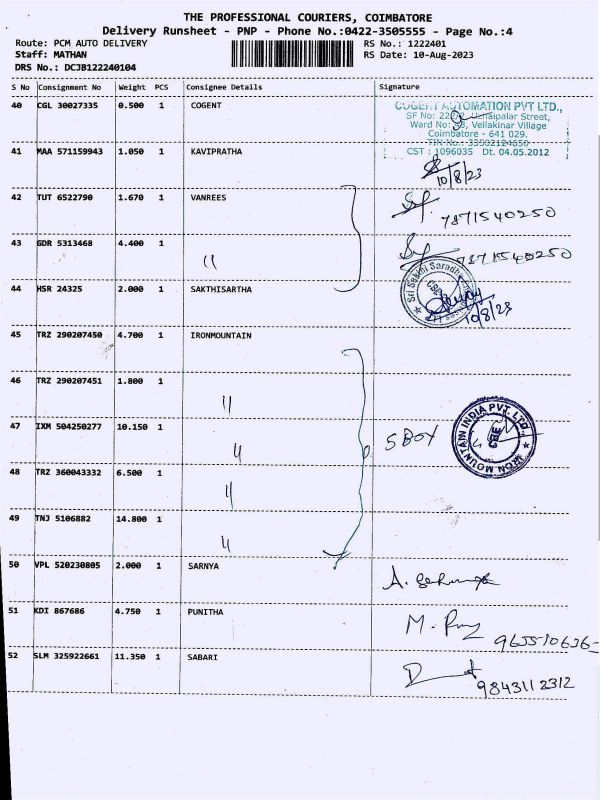 THE PROFESSIONAL COURIERS, COIMBATORE
Delivery Runsheet - PNP - Phone No.:0422-3505555 - Page No.:4
Route: PCM AUTO DELIVERY RS No.: 1222401
Staff: MATHAN RS Date: 10-Aug-2023
DRS No.: DCJB122240104
S No Consignment No Weight PCS Consignee Details Signature
40 CGL 30027335 0.500 1 COGENT
COGENT AUTOMATION PVT LTD.,
Street,
Ward No: Vellakinar Village
Coimbatore - 641 029.
TIN No.: 33502124650
CST : 1096035 Dt. 04.05.2012
41 MAA 571159943 1.050 1 KAVIPRATHA
10/8/23
42 TUT 6522790 1.670 1 VANREES 7871540250
43 GDR 5313468 4.400 1 " 7871540250
44 HSR 24325 2.000 1 SAKTHISARTHA
CBE
10/8/23
45 TRZ 290207450 4.700 1 IRONMOUNTAIN
46 TRZ 290207451 1.800 1 "
47 IXM 504250277 10.150 1 " 5 BOX
IRON MOUNTAIN INDIA PVT. LTD.
CBE
48 TRZ 360043332 6.500 1 "
49 TNJ 5106882 14.800 1 "
50 VPL 520230805 2.000 1 SARNYA A.
51 KDI 867686 4.750 1 PUNITHA M.
52 SLM 325922661 11.350 1 SABARI 9843112312